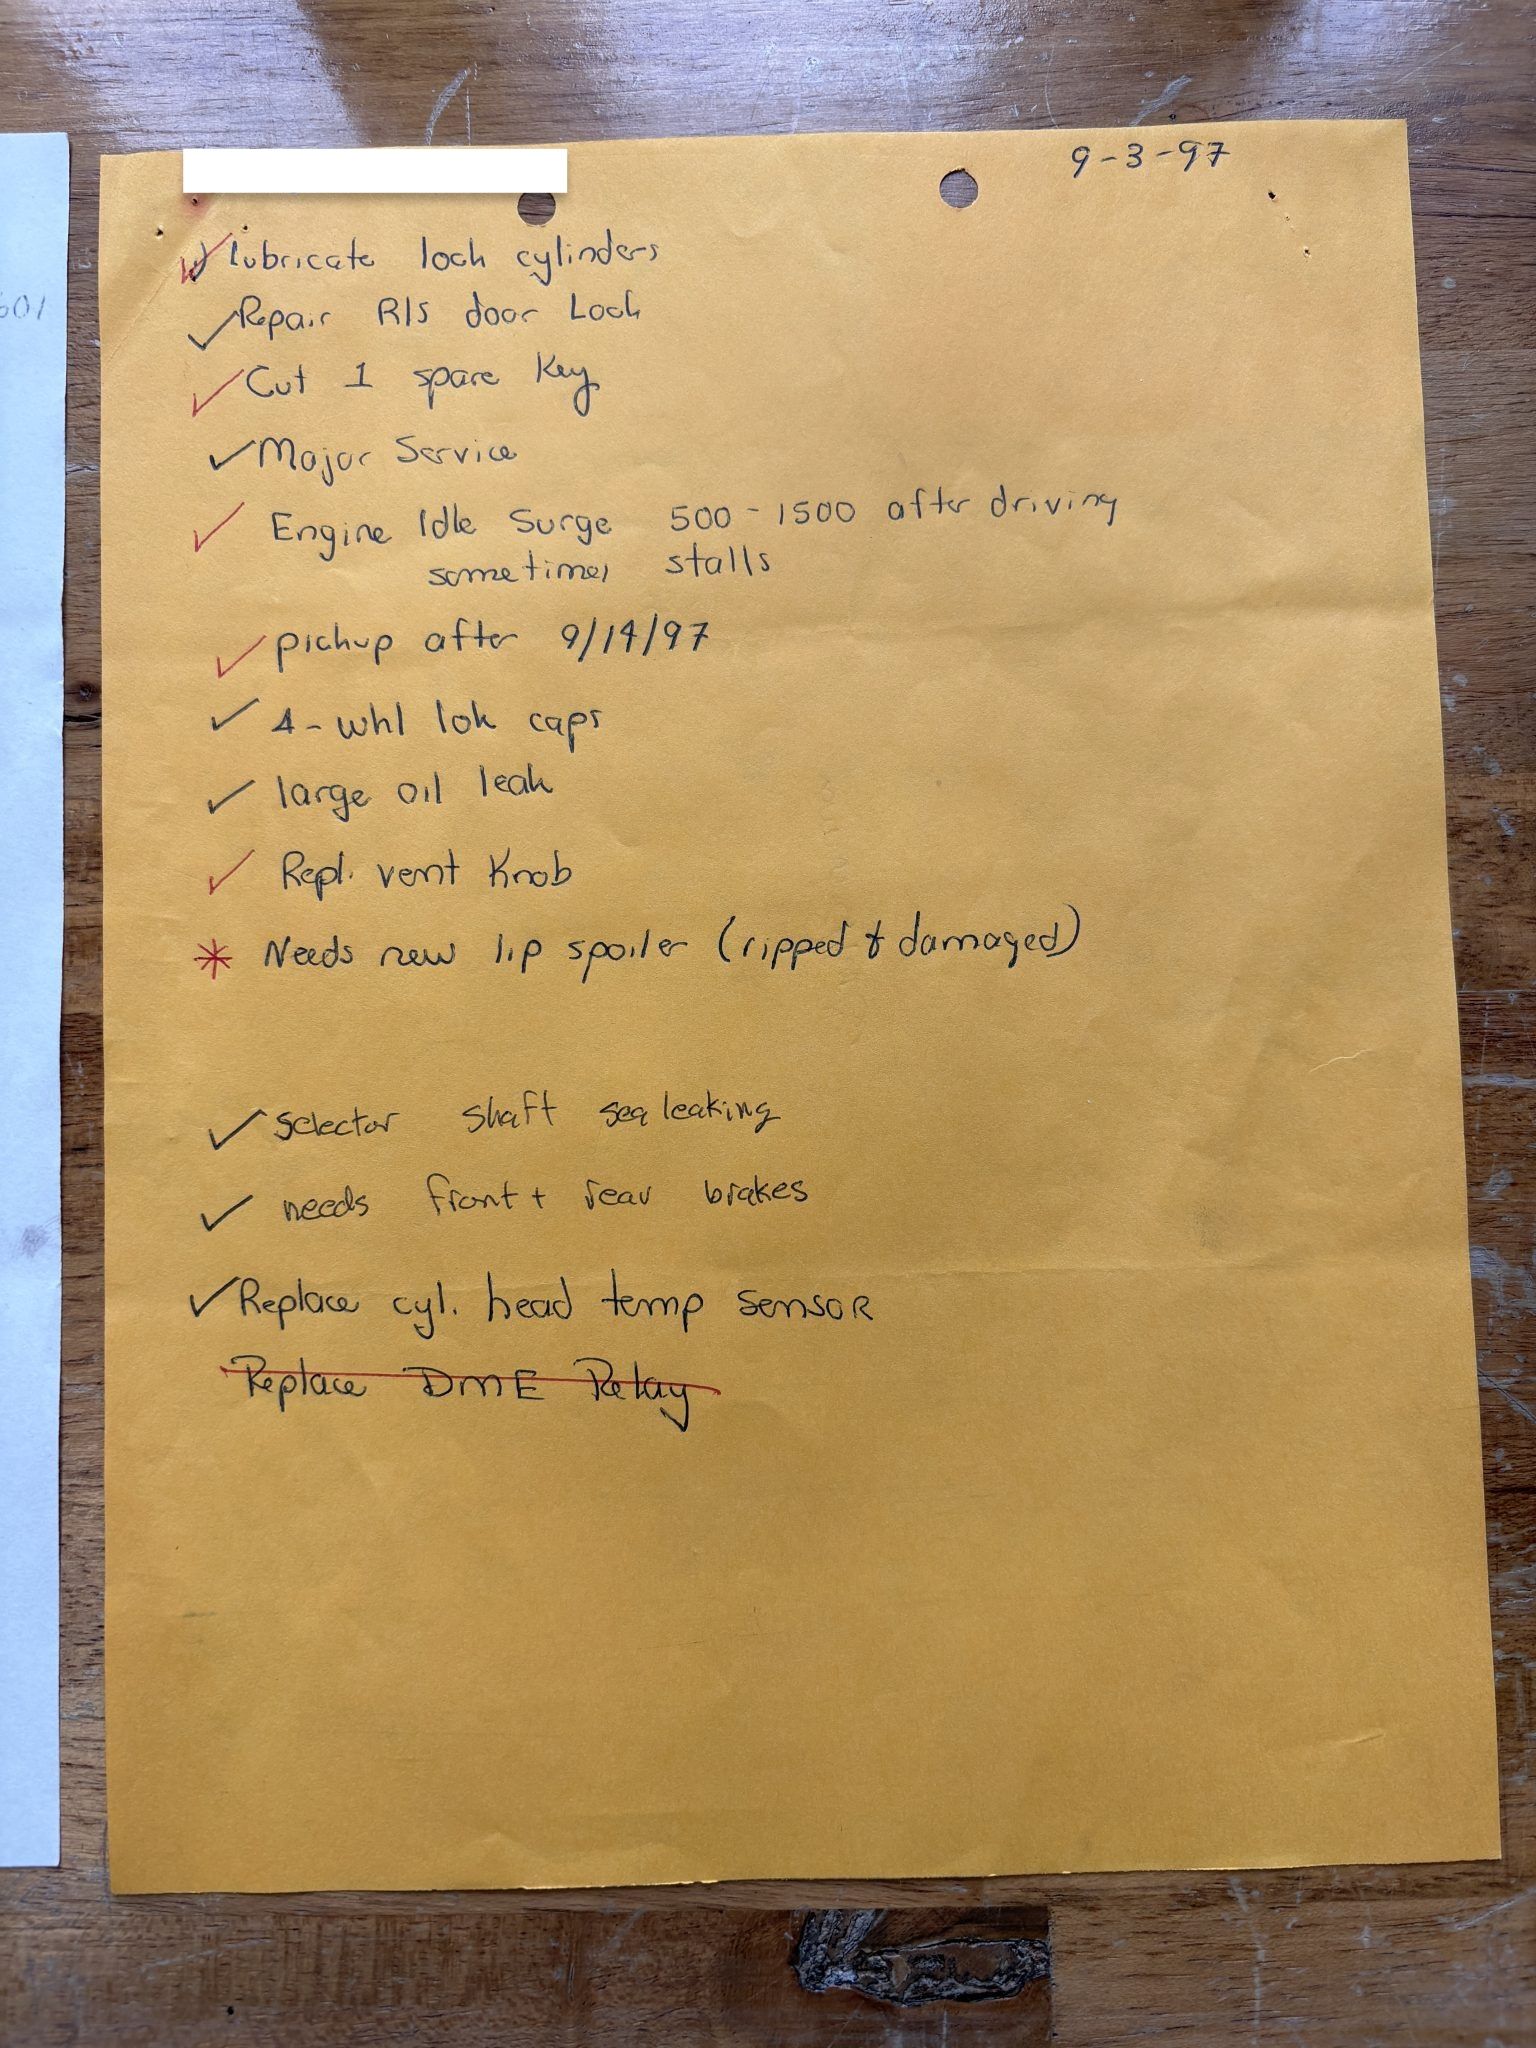 9-3-97
lubricate lock cylinders
Repair R/S door Lock
Cut 1 spare Key
Major Service
Engine Idle Surge 500-1500 after driving
sometimes stalls
pickup after 9/14/97
4-whl lok caps
large oil leak
Repl. vent Knob
* Needs new lip spoiler (ripped & damaged)
selector shaft sea leaking
needs front + rear brakes
Replace cyl. head temp sensor
Replace DME Relay
601